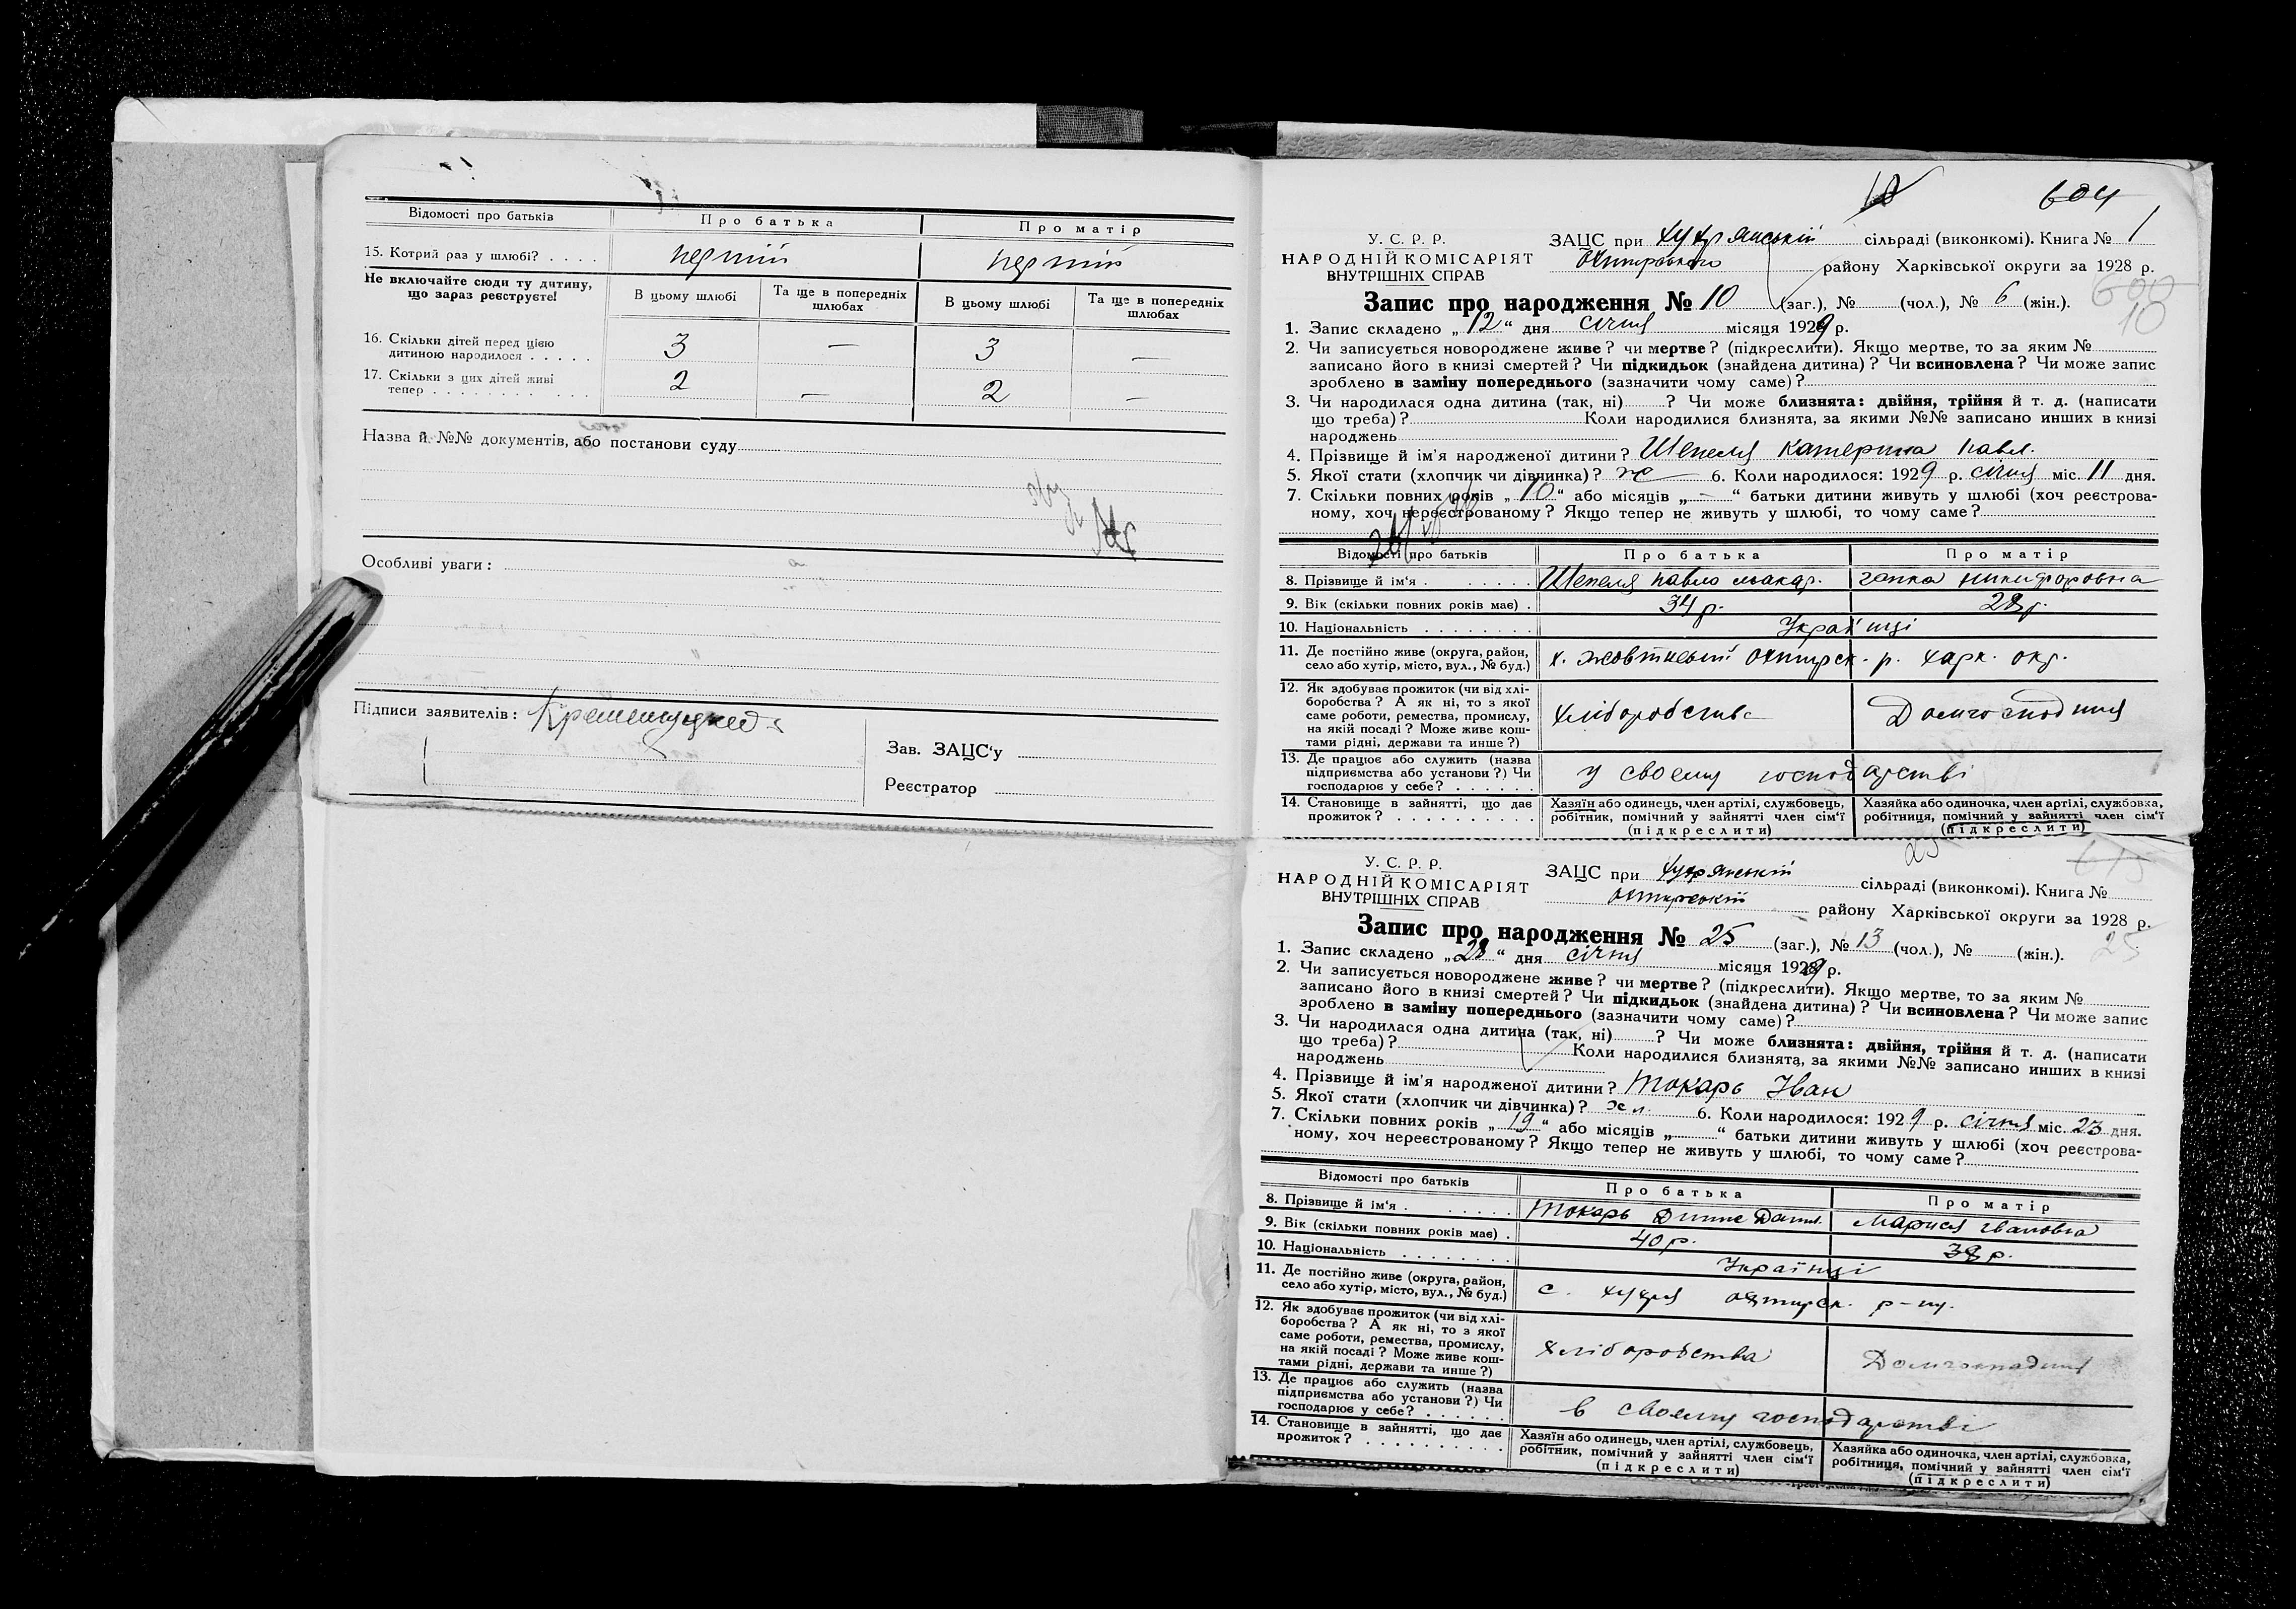 Відомості про батьків Про батька Про матір
15. Котрий раз у шлюбі? . . . . перший перший
Не включайте сюди ту дитину,
що зараз реєструєте!
В цьому шлюбі Та ще в попередніх
шлюбах В цьому шлюбі Та ще в попередніх
шлюбах
16. Скільки дітей перед цією
дитиною народилося . . . . . 3 — 3 —
17. Скільки з цих дітей живі
тепер . . . . . . . . . . . 2 — 2 —
Назва й №№ документів, або постанови суду
Особливі уваги :
Підписи заявителів :
Зав. ЗАЦС'у
Реєстратор
10 604
У. С. Р. Р.
НАРОДНІЙ КОМІСАРІЯТ
ВНУТРІШНІХ СПРАВ
ЗАЦС при Хухрянській сільраді (виконкомі). Книга № 1
Охтирського району Харківської округи за 1928 р.
600
10
Запис про народження № 10 (заг.), № (чол.), № 6 (жін.).
1. Запис складено „ 12 “ дня січня місяця 1929 р.
2. Чи записується новороджене живе? чи мертве? (підкреслити). Якщо мертве, то за яким №
записано його в книзі смертей? Чи підкидьок (знайдена дитина)? Чи всиновлена? Чи може запис
зроблено в заміну попереднього (зазначити чому саме)?
3. Чи народилася одна дитина (так, ні) ? Чи може близнята: двійня, трійня й т. д. (написати
що треба)? Коли народилися близнята, за якими №№ записано инших в книзі
народжень
4. Прізвище й ім'я народженої дитини? Шепеля Катерина Павл.
5. Якої стати (хлопчик чи дівчинка)? ж 6. Коли народилося: 1929 р. січня міс. 11 дня.
7. Скільки повних років „ 10 “ або місяців „ — “ батьки дитини живуть у шлюбі (хоч реєстрова-
ному, хоч нереєстрованому? Якщо тепер не живуть у шлюбі, то чому саме?
Відомості про батьків Про батька Про матір
8. Прізвище й ім'я . . . . . . Шепеля Павло Макар. Ганна Никифоровна
9. Вік (скільки повних років має) . 34 р. 28 р.
10. Національність . . . . . . . . Українці
11. Де постійно живе (округа, район,
село або хутір, місто, вул., № буд.) х. Жовтневий Охтирск. р. Харк. окр.
12. Як здобуває прожиток (чи від хлі-
боробства? А як ні, то з якої
саме роботи, ремества, промислу,
на якій посаді? Може живе кош-
тами рідні, держави та инше?) Хліборобства Домгосподиня
13. Де працює або служить (назва
підприємства або установи?) Чи
господарює у себе? . . . . . . у своему господарстві
14. Становище в зайнятті, що дає
прожиток? . . . . . . . . . .
Хазяїн або одинець, член артілі, службовець,
робітник, помічний у зайнятті член сім'ї
(підкреслити)
Хазяйка або одиночка, член артілі, службовка,
робітниця, помічний у зайнятті член сім'ї
(підкреслити)
25 615
У. С. Р. Р.
НАРОДНІЙ КОМІСАРІЯТ
ВНУТРІШНІХ СПРАВ
ЗАЦС при Хухрянській сільраді (виконкомі). Книга №
Охтирський району Харківської округи за 1928 р.
25
Запис про народження № 25 (заг.), № 13 (чол.), № (жін.).
1. Запис складено „ 28 “ дня січня місяця 1929 р.
2. Чи записується новороджене живе? чи мертве? (підкреслити). Якщо мертве, то за яким №
записано його в книзі смертей? Чи підкидьок (знайдена дитина)? Чи всиновлена? Чи може запис
зроблено в заміну попереднього (зазначити чому саме)?
3. Чи народилася одна дитина (так, ні) ? Чи може близнята: двійня, трійня й т. д. (написати
що треба)? Коли народилися близнята, за якими №№ записано инших в книзі
народжень
4. Прізвище й ім'я народженої дитини? Токарь Іван
5. Якої стати (хлопчик чи дівчинка)? хл. 6. Коли народилося: 1929 р. січня міс. 23 дня.
7. Скільки повних років „ 19 “ або місяців „ “ батьки дитини живуть у шлюбі (хоч реєстрова-
ному, хоч нереєстрованому? Якщо тепер не живуть у шлюбі, то чому саме?
Відомості про батьків Про батька Про матір
8. Прізвище й ім'я . . . . . . Токарь Данил. Мария Івановна
9. Вік (скільки повних років має) . 40 р. 38 р.
10. Національність . . . . . . . . Українці
11. Де постійно живе (округа, район,
село або хутір, місто, вул., № буд.) с. Хухря Охтирск. р-ну.
12. Як здобуває прожиток (чи від хлі-
боробства? А як ні, то з якої
саме роботи, ремества, промислу,
на якій посаді? Може живе кош-
тами рідні, держави та инше?) Хліборобства Домгосподиня
13. Де працює або служить (назва
підприємства або установи?) Чи
господарює у себе? . . . . . . в своему господарстві
14. Становище в зайнятті, що дає
прожиток? . . . . . . . . . .
Хазяїн або одинець, член артілі, службовець,
робітник, помічний у зайнятті член сім'ї
(підкреслити)
Хазяйка або одиночка, член артілі, службовка,
робітниця, помічний у зайнятті член сім'ї
(підкреслити)